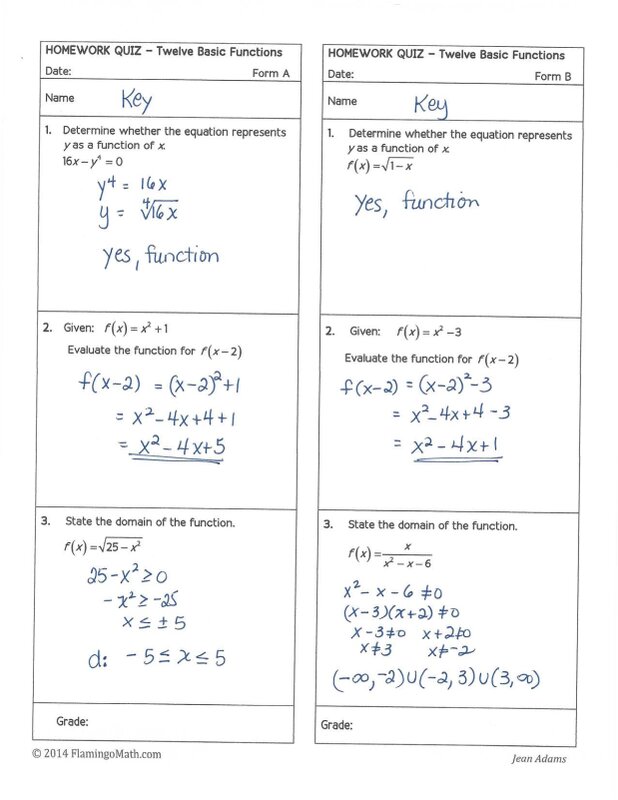 HOMEWORK QUIZ – Twelve Basic Functions
Date: Form A
Name Key
1. Determine whether the equation represents
y as a function of x.
16x – y⁴ = 0
y⁴ = 16x
y = ∜16x
yes, function
2. Given: f(x) = x² + 1
Evaluate the function for f(x – 2)
f(x-2) = (x-2)²+1
= x²-4x+4+1
= x²-4x+5
3. State the domain of the function.
f(x) = √25 – x²
25-x² ≥ 0
-x² ≥ -25
x ≤ ± 5
d: -5 ≤ x ≤ 5
Grade:
© 2014 FlamingoMath.com
HOMEWORK QUIZ – Twelve Basic Functions
Date: Form B
Name Key
1. Determine whether the equation represents
y as a function of x.
f(x) = √1 – x
yes, function
2. Given: f(x) = x² – 3
Evaluate the function for f(x – 2)
f(x-2) = (x-2)²-3
= x²-4x+4-3
= x²-4x+1
3. State the domain of the function.
f(x) = x / x² – x – 6
x²-x-6 ≠ 0
(x-3)(x+2) ≠ 0
x-3≠0 x+2≠0
x≠3 x≠-2
(-∞,-2)∪(-2,3)∪(3,∞)
Grade:
Jean Adams